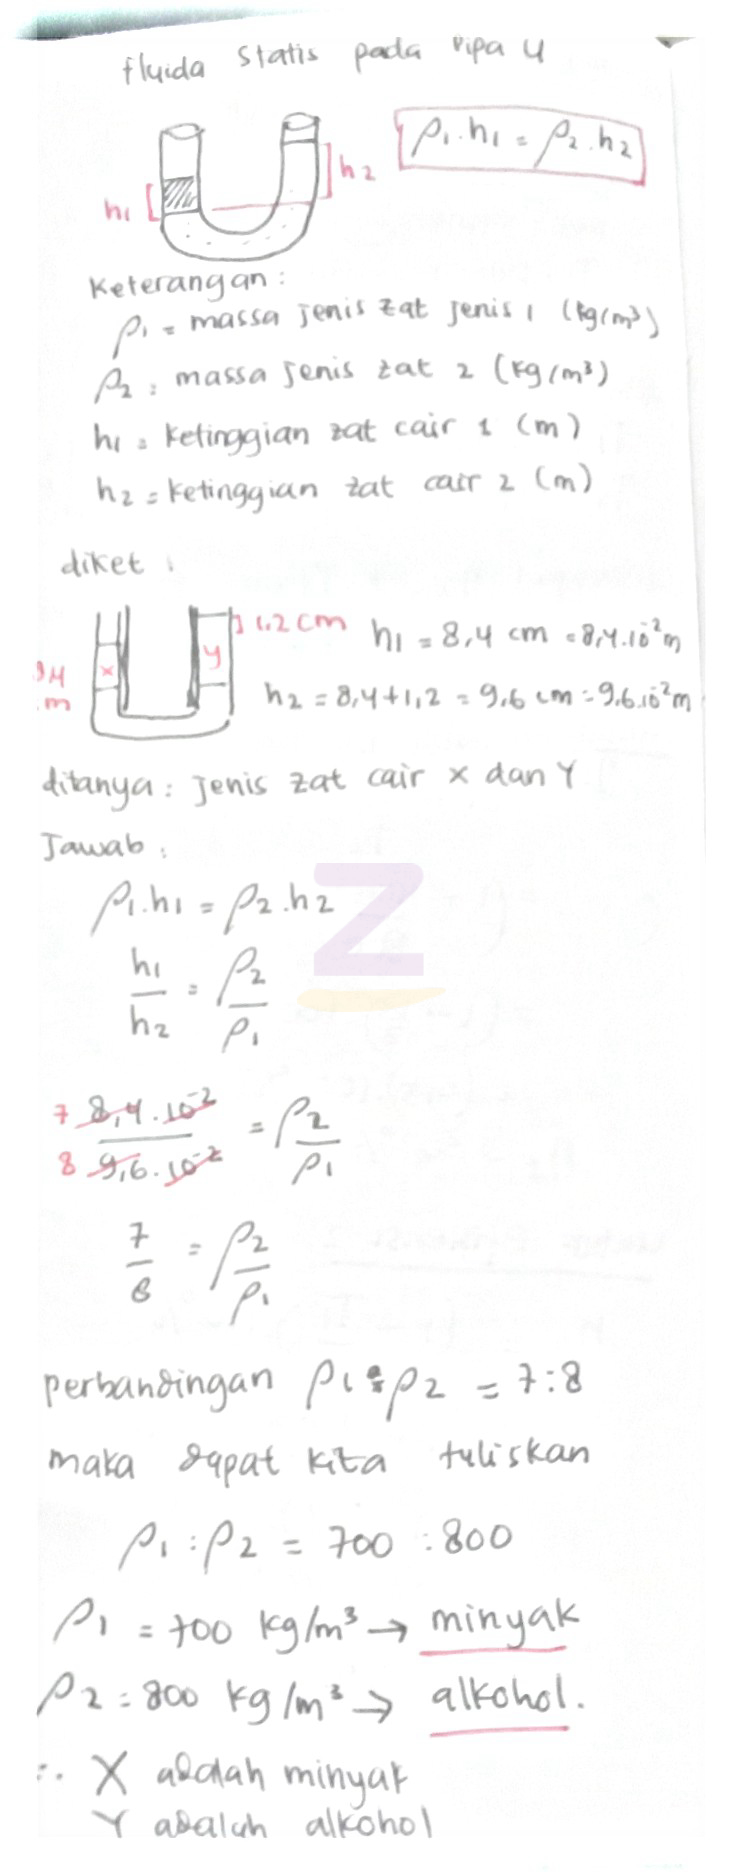 fluida Statis pada pipa U
ρ1.h1 = ρ2.h2
h1
h2
Keterangan:
ρ1 = massa jenis zat jenis 1 (kg/m³)
ρ2 = massa jenis zat 2 (kg/m³)
h1 = ketinggian zat cair 1 (m)
h2 = ketinggian zat cair 2 (m)
diket :
1.2 cm
x
y
h1 = 8,4 cm = 8,4.10⁻² m
h2 = 8,4+1,2 = 9,6 cm = 9,6.10⁻² m
ditanya : jenis zat cair x dan Y
Jawab :
Z
ρ1.h1 = ρ2.h2
h1/h2 = ρ2/ρ1
7 8,4.10⁻² / 8 9,6.10⁻² = ρ2/ρ1
7/8 = ρ2/ρ1
perbandingan ρ1 : ρ2 = 7:8
maka dapat kita tuliskan
ρ1 : ρ2 = 700 : 800
ρ1 = 700 kg/m³ → minyak
ρ2 = 800 kg/m³ → alkohol.
∴ X adalah minyak
Y adalah alkohol